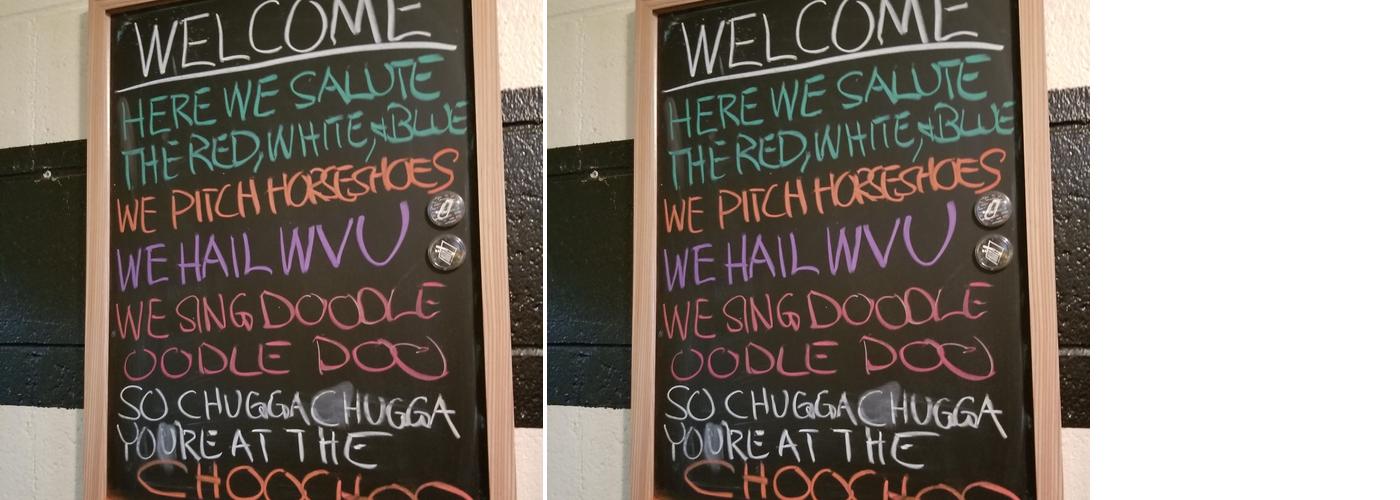 WELCOME
HERE WE SALUTE
THE RED, WHITE, & BLUE
WE PITCH HORSESHOES
WE HAIL WVU
WE SING DOODLE
OODLE DOO
SO CHUGGA CHUGGA
YOURE AT THE
CHOOCHOO
WELCOME
HERE WE SALUTE
THE RED, WHITE, & BLUE
WE PITCH HORSESHOES
WE HAIL WVU
WE SING DOODLE
OODLE DOO
SO CHUGGA CHUGGA
YOURE AT THE
CHOOCHOO